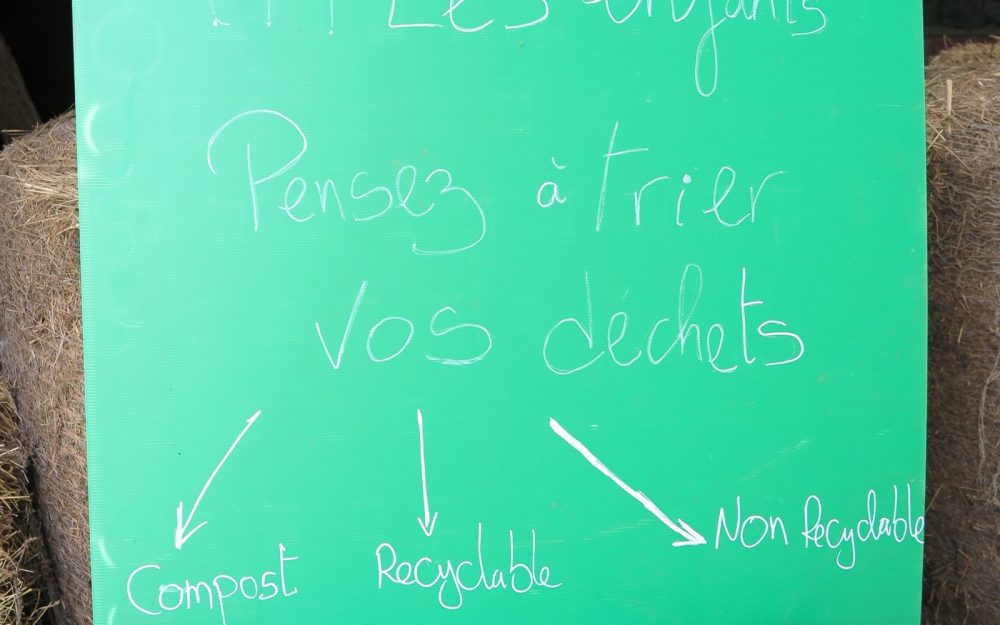 !!! Les enfants
Pensez à trier
vos déchets
Compost
Recyclable
Non Recyclable